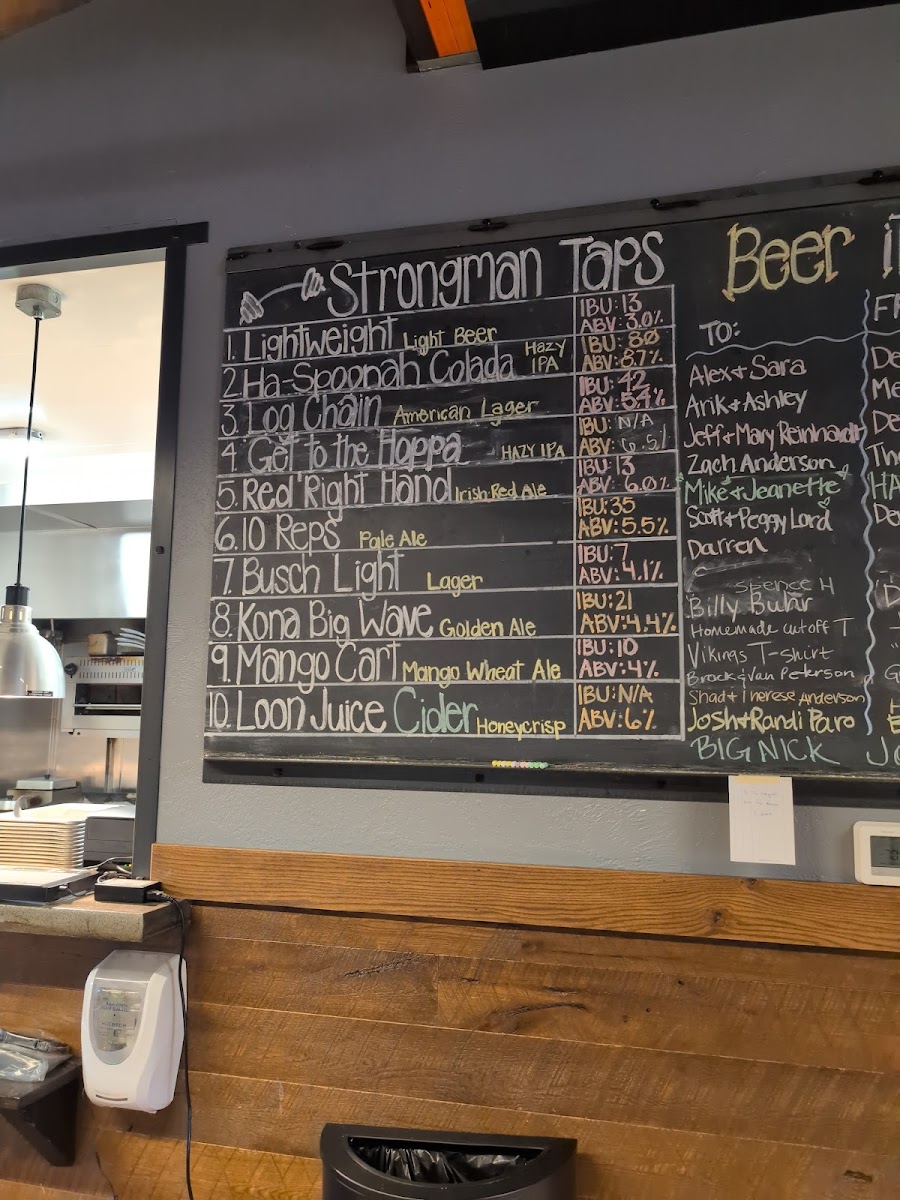 Strongman Taps
1. Lightweight Light Beer IBU: 13 ABV: 3.0%
2. Ha-Spoonah Colada Hazy IPA IBU: 80 ABV: 8.7%
3. Log Chain American Lager IBU: 42 ABV: 5.4%
4. Get to the Hoppa HAZY IPA IBU: N/A ABV: 6.5%
5. Red Right Hand Irish Red Ale IBU: 13 ABV: 6.0%
6. 10 Reps Pale Ale IBU: 35 ABV: 5.5%
7. Busch Light Lager IBU: 7 ABV: 4.1%
8. Kona Big Wave Golden Ale IBU: 21 ABV: 4.4%
9. Mango Cart Mango Wheat Ale IBU: 10 ABV: 4%
10. Loon Juice Cider Honeycrisp IBU: N/A ABV: 6%
Beer
TO:
Alex & Sara
Arik & Ashley
Jeff & Mary Reinhardt
Zach Anderson
Mike & Jeanette
Scott & Peggy Lord
Darren
Spence H
Billy Buhr
Homemade cutoff T
Vikings T-shirt
Brock & Van Peterson
Shad & Therese Anderson
Josh & Randi Paro
BIG NICK